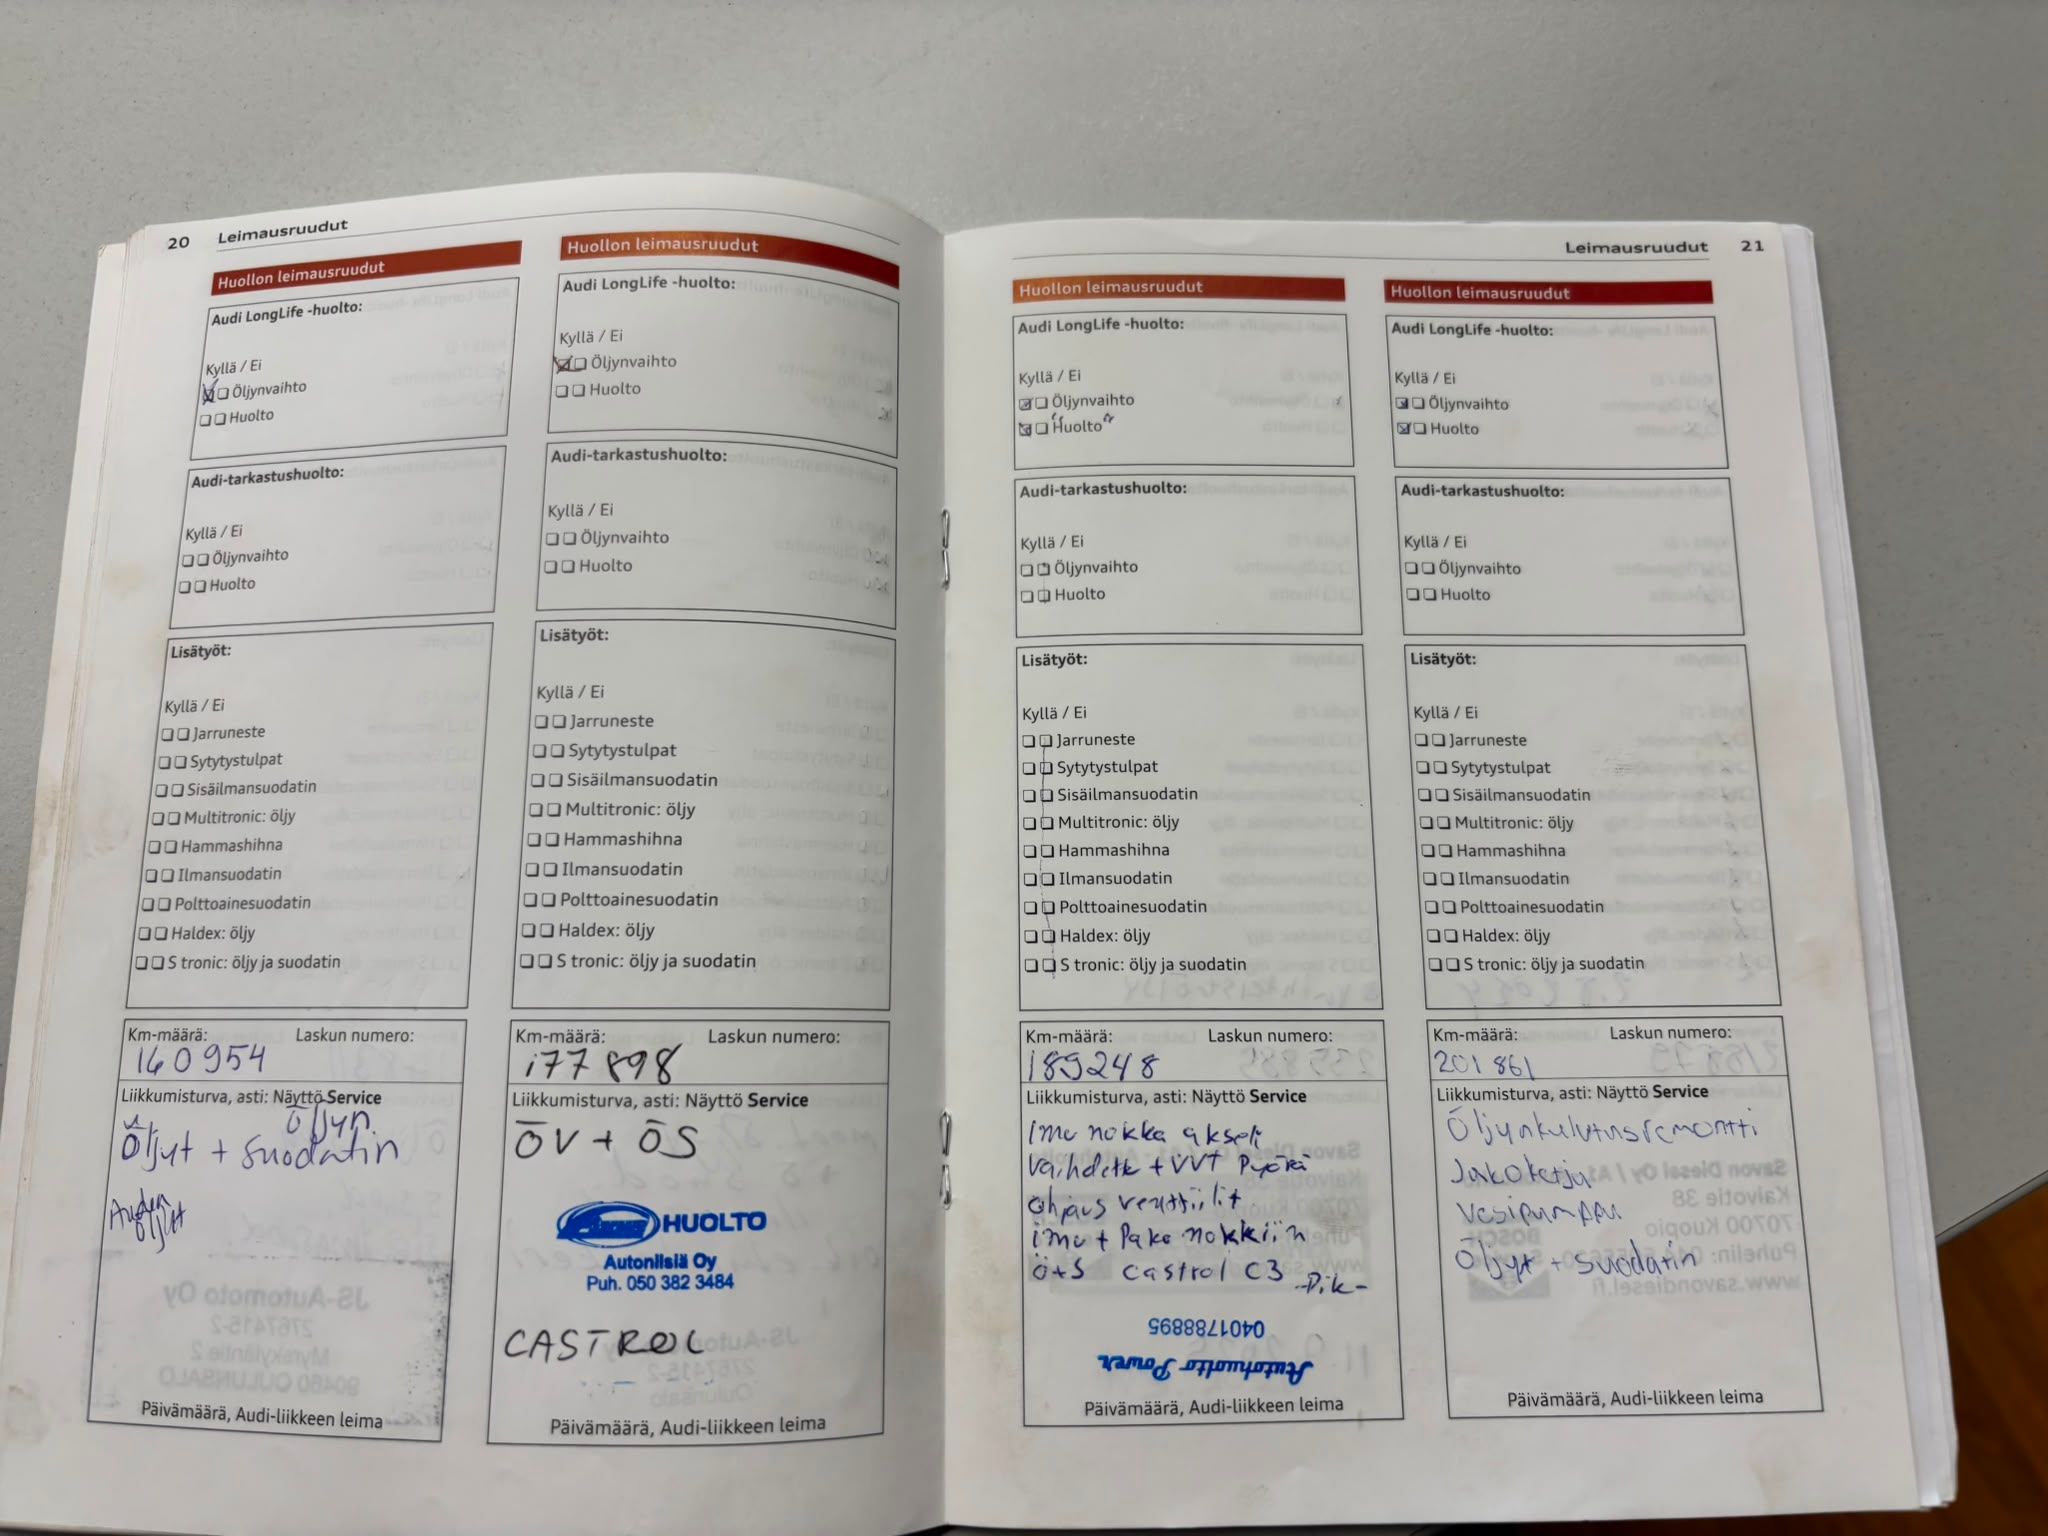 20 Leimausruudut
Huollon leimausruudut
Audi LongLife -huolto:
Kyllä / Ei
Öljynvaihto
Huolto
Audi-tarkastushuolto:
Kyllä / Ei
Öljynvaihto
Huolto
Lisätyöt:
Kyllä / Ei
Jarruneste
Sytytystulpat
Sisäilmansuodatin
Multitronic: öljy
Hammashihna
Ilmansuodatin
Polttoainesuodatin
Haldex: öljy
S tronic: öljy ja suodatin
Km-määrä: Laskun numero:
160954
Liikkumisturva, asti: Näyttö Service
öljyn
Öljyt + suodatin
Audin
öljyt
Päivämäärä, Audi-liikkeen leima
Huollon leimausruudut
Audi LongLife -huolto:
Kyllä / Ei
Öljynvaihto
Huolto
Audi-tarkastushuolto:
Kyllä / Ei
Öljynvaihto
Huolto
Lisätyöt:
Kyllä / Ei
Jarruneste
Sytytystulpat
Sisäilmansuodatin
Multitronic: öljy
Hammashihna
Ilmansuodatin
Polttoainesuodatin
Haldex: öljy
S tronic: öljy ja suodatin
Km-määrä: Laskun numero:
177 898
Liikkumisturva, asti: Näyttö Service
ÖV + ÖS
HUOLTO
Autoniisiä Oy
Puh. 050 382 3484
CASTROL
Päivämäärä, Audi-liikkeen leima
Leimausruudut 21
Huollon leimausruudut
Audi LongLife -huolto:
Kyllä / Ei
Öljynvaihto
"Huolto"
Audi-tarkastushuolto:
Kyllä / Ei
Öljynvaihto
Huolto
Lisätyöt:
Kyllä / Ei
Jarruneste
Sytytystulpat
Sisäilmansuodatin
Multitronic: öljy
Hammashihna
Ilmansuodatin
Polttoainesuodatin
Haldex: öljy
S tronic: öljy ja suodatin
Km-määrä: Laskun numero:
189248
Liikkumisturva, asti: Näyttö Service
imu nokka akseli
vaihdettu + VVT pyörä
ohjaus venttiilit
imu + Pako nokkiin
Ö+S Castrol C3
0401788895
Autohuolto Power
Päivämäärä, Audi-liikkeen leima
Huollon leimausruudut
Audi LongLife -huolto:
Kyllä / Ei
Öljynvaihto
Huolto
Audi-tarkastushuolto:
Kyllä / Ei
Öljynvaihto
Huolto
Lisätyöt:
Kyllä / Ei
Jarruneste
Sytytystulpat
Sisäilmansuodatin
Multitronic: öljy
Hammashihna
Ilmansuodatin
Polttoainesuodatin
Haldex: öljy
S tronic: öljy ja suodatin
Km-määrä: Laskun numero:
201 861
Liikkumisturva, asti: Näyttö Service
Öljynkulutusremontti
Jakoketju
vesipumppu
Öljyt + suodatin
Päivämäärä, Audi-liikkeen leima